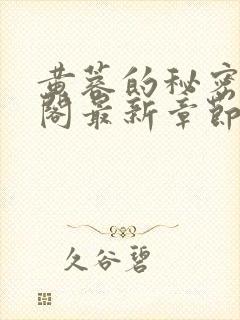 黄蓉的秘密
阁最新章节
久谷碧